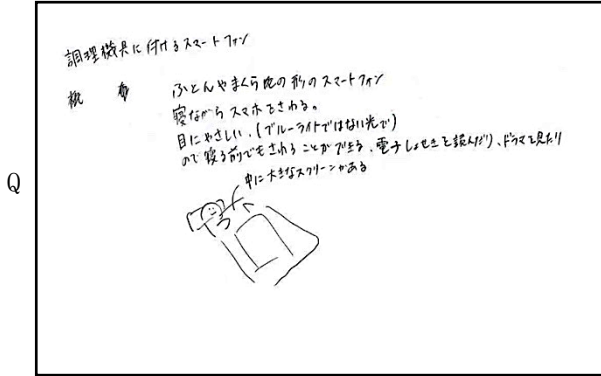 調理機具に付けるスマートフォン
ふとんやまくら の形のスマートフォン
寝ながらスマホをさわる。
目にやさしい。(ブルーライトではない光で)
ので寝る前でもさわることができる、電子しょせきを読んだり、ドラマを見たり
中に大きなスクリーンがある
Q